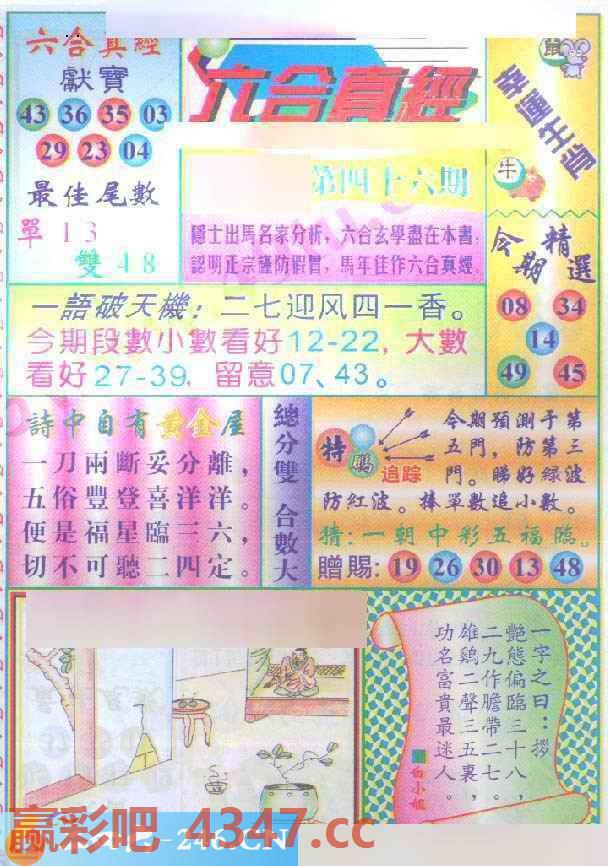 六合真經
獻寶
43 36 35 03
29 23 04
最佳尾數
單 1 3
雙 4 8
六合真經
第四十六期
隱士出馬名家分析，六合玄學盡在本書；
認明正宗謹防假冒，馬年佳作六合真經。
鼠
幸運生肖
牛
今期精選
08 34
14
49 45
一語破天機：二七迎风四一香。
今期段數小數看好12-22，大數
看好27-39，留意07、43。
詩中自有黃金屋
一刀兩斷妥分離，
五俗豐登喜洋洋。
便是福星臨三六，
切不可聽二四定。
總分雙 合數大
特碼追踪
今期預測于第
五門，防第三
門。睇好緑波
防紅波。捧單數追小數。
猜：一朝中彩五福臨。
贈賜：19 26 30 13 48
一字之曰：拶
艷態偏臨三十八，
二九作膽帶二七。
雄鷄二聲三五裏，
功名富貴最迷人。
白小姐
赢彩吧 4347.cc
246.CN